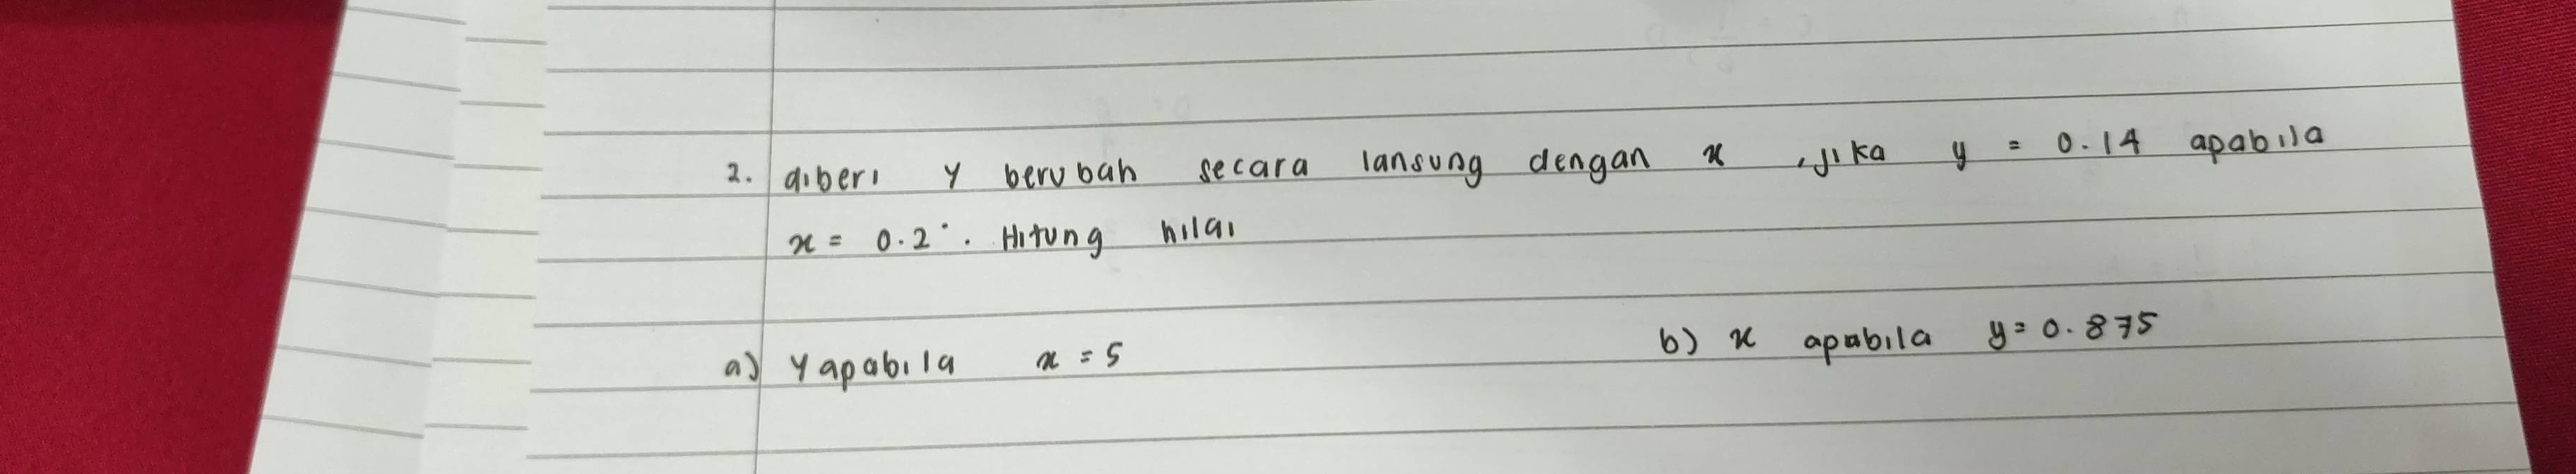 2. diberi y berubah secara lansung dengan x , jika y = 0.14 apabila
x = 0.2 . Hitung nilai
a) y apabila x = 5 b) x apabila y = 0.875